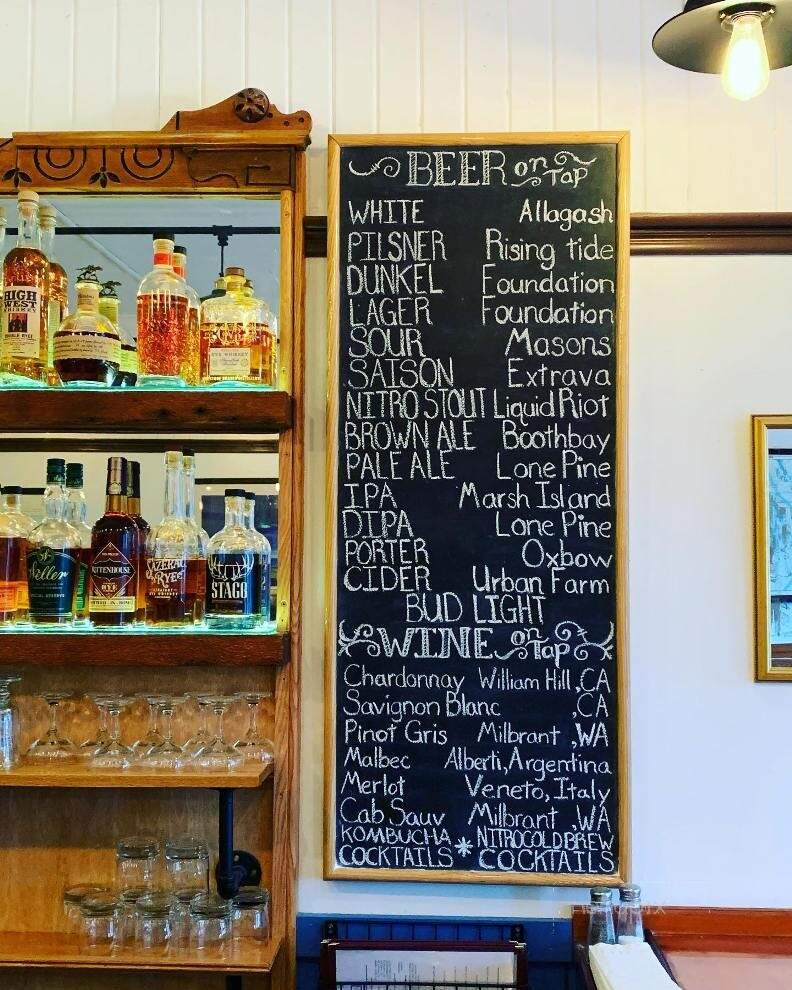 BEER on Tap
WHITE Allagash
PILSNER Rising tide
DUNKEL Foundation
LAGER Foundation
SOUR Masons
SAISON Extrava
NITRO STOUT Liquid Riot
BROWN ALE Boothbay
PALE ALE Lone Pine
IPA Marsh Island
DIPA Lone Pine
PORTER Oxbow
CIDER Urban Farm
BUD LIGHT
WINE on Tap
Chardonnay William Hill, CA
Savignon Blanc ,CA
Pinot Gris Milbrant ,WA
Malbec Alberti, Argentina
Merlot Veneto, Italy
Cab Sauv Milbrant ,WA
KOMBUCHA * NITRO COLD BREW
COCKTAILS COCKTAILS
HIGH
WEST
WHISKEY
DOUBLE RYE
RYE WHISKEY
Weller
SPECIAL RESERVE
RITTENHOUSE
RYE
BOTTLED IN BOND
SAZERAC
RYE
STAGG